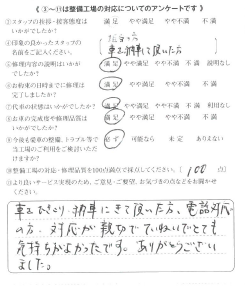 《 ③〜⑪は整備工場の対応についてのアンケートです 》
①スタッフの挨拶・接客態度は
いかがでしたか？
満足 やや満足 やや不満 不満
②印象の良かったスタッフの
名前をご記入ください。
車を納車して頂いた方
③修理内容の説明はいかが
でしたか？
満足 やや満足 やや不満 不満 説明なし
④お約束の日時までに修理は
完了しましたか？
満足 やや満足 やや不満 不満
⑦代車の状態はいかがでしたか？
満足 やや満足 やや不満 不満
⑧お車の完成度や修理品質は
いかがでしたか？
満足 やや満足 やや不満 不満
⑨今後も愛車の整備、トラブル等で
当工場のご利用をご検討いた
だけますか？
必ず 可能なら 未定 ありえない
⑩整備工場の対応・修理品質を100点満点で採点してください。〔 100 点〕
⑪より良いサービス実現のため、ご意見・ご要望、お気づきの点などをお聞かせ
ください。
車をひきとり・納車にきて頂いた方、電話対応
の方、対応が親切でていねいでとても
気持ちがよかったです。ありがとうござい
ました。